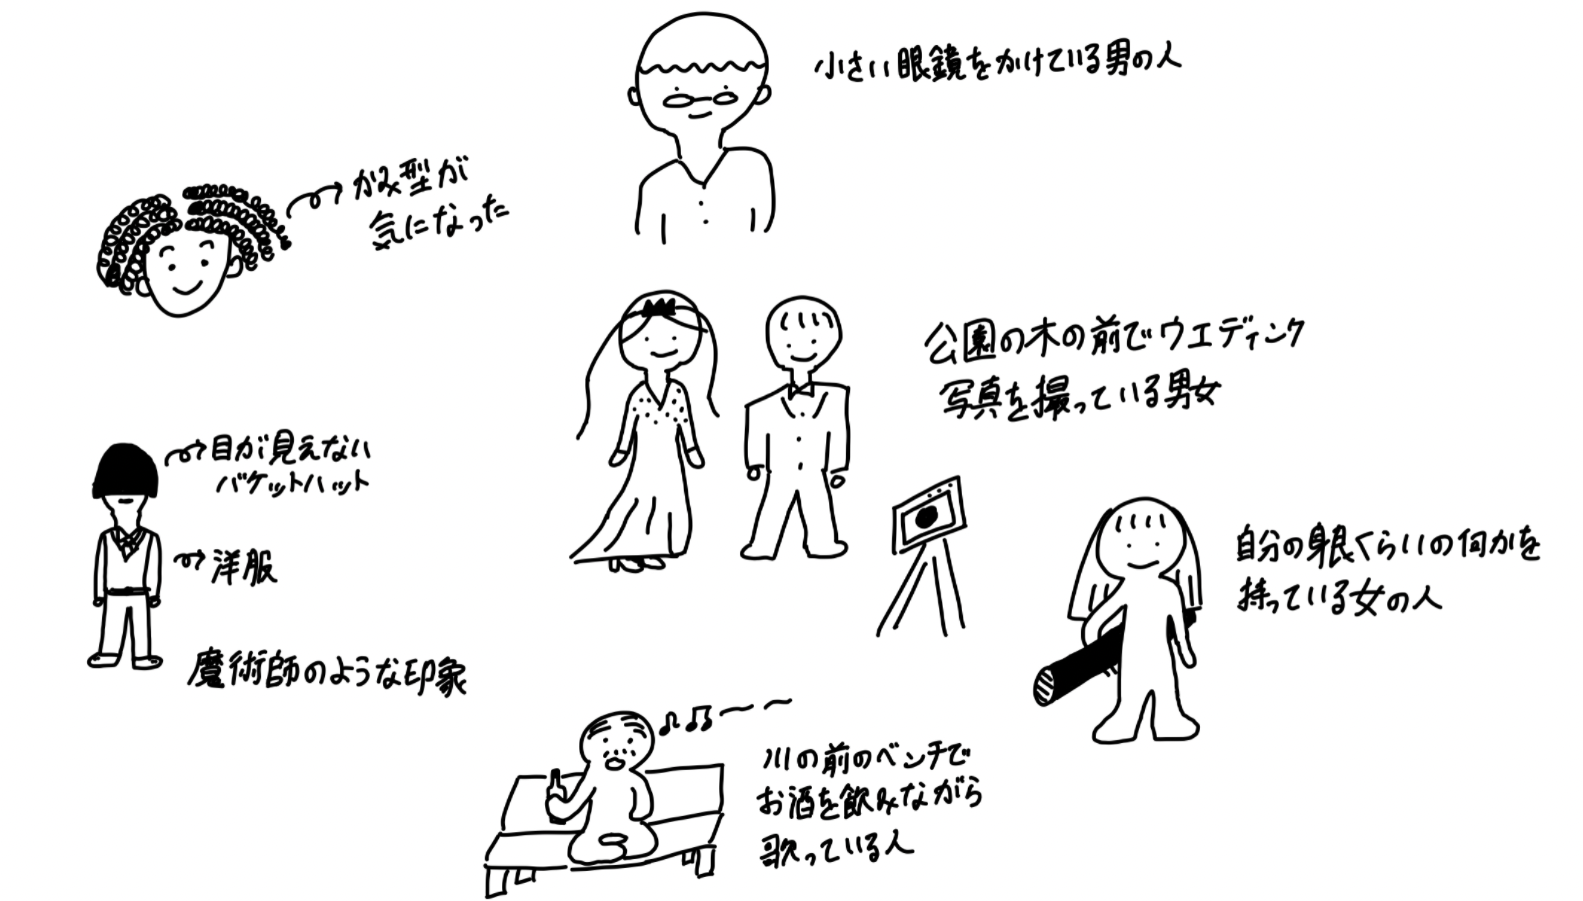 小さい眼鏡をかけている男の人
かみ型が
気になった
公園の木の前でウエディンク
写真を撮っている男女
目が見えない
バケットハット
洋服
魔術師のような印象
自分の身長くらいの何かを
持っている女の人
川の前のベンチで
お酒を飲みながら
歌っている人